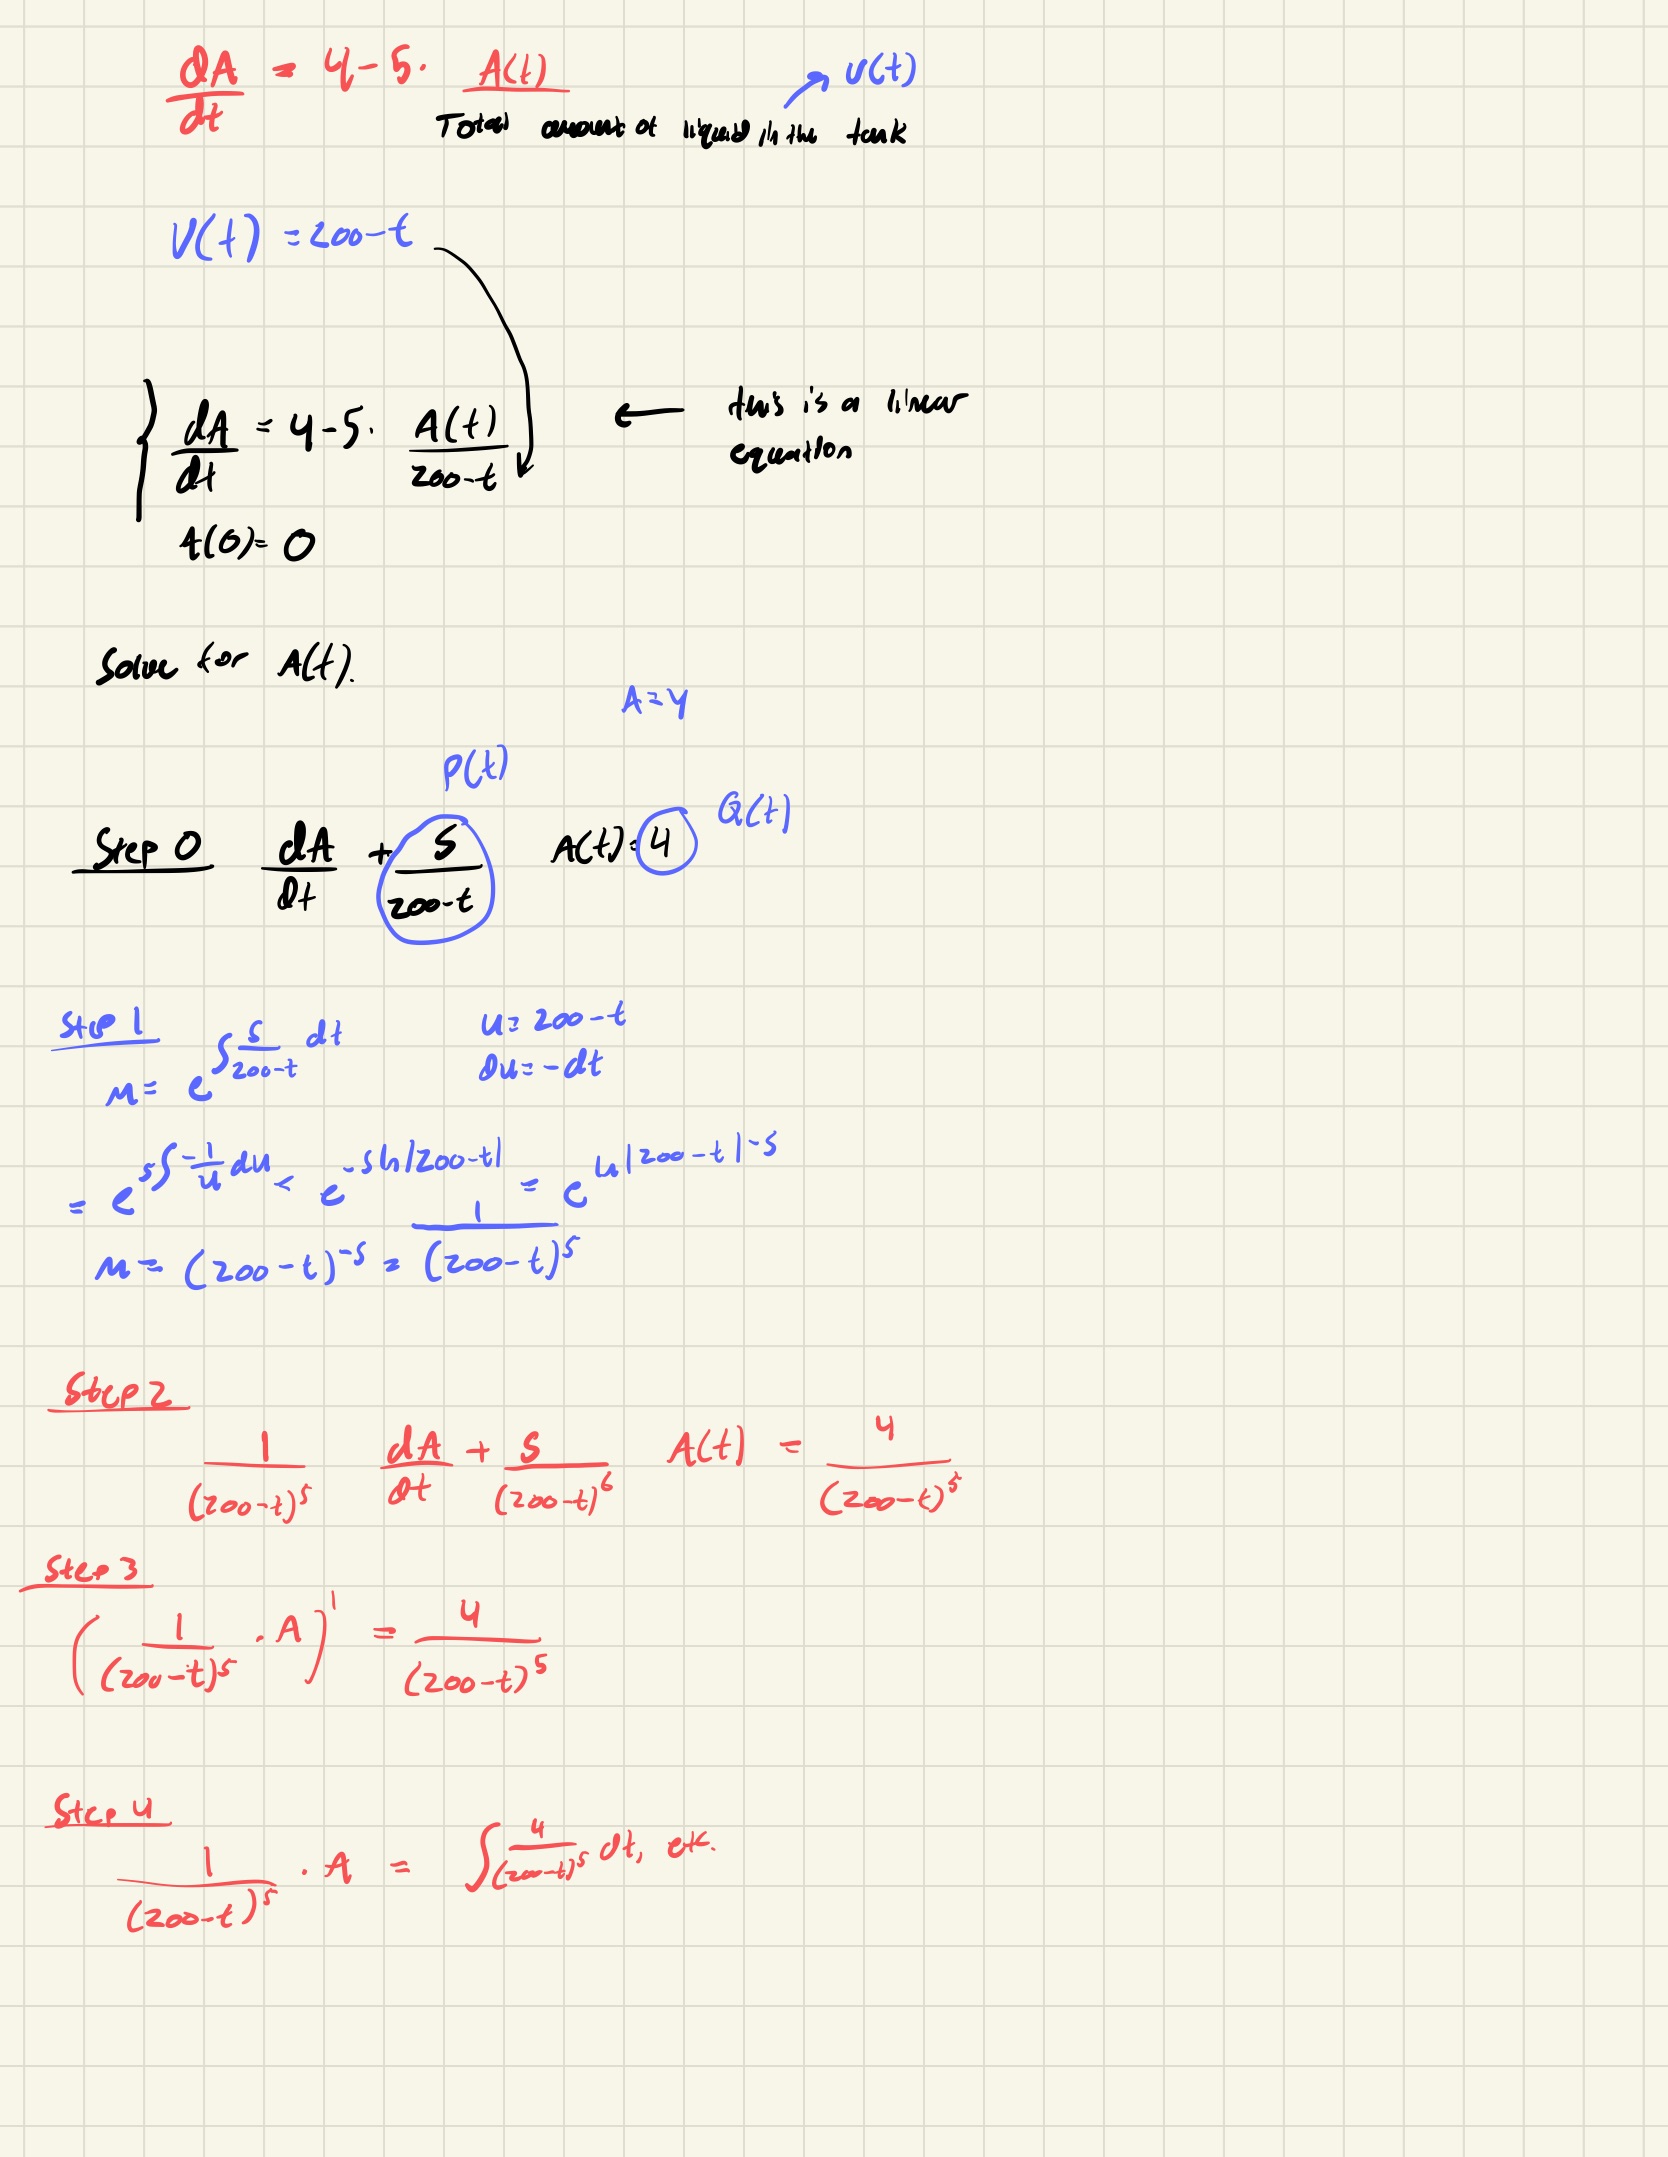 dA/dt = 4-5· A(t)/Total amount of liquid in the tank → V(t)
V(t) = 200-t
dA/dt = 4-5· A(t)/200-t ← this is a linear
equation
A(0)= 0
Solve for A(t).
A=y
P(t)
Q(t)
Step 0 dA/dt + 5/200-t A(t)=4
Step 1
μ= e^∫5/200-t dt
u= 200-t
du= -dt
= e^5∫-1/u du = e^-5ln|200-t| = e^ln|200-t|^-5
μ= (200-t)^-5 = 1/(200-t)^5
Step 2
1/(200-t)^5 dA/dt + 5/(200-t)^6 A(t) = 4/(200-t)^5
Step 3
(1/(200-t)^5 · A)' = 4/(200-t)^5
Step 4
1/(200-t)^5 · A = ∫4/(200-t)^5 dt, etc.